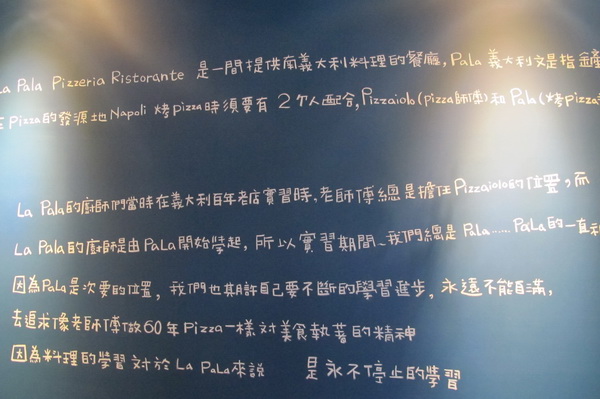 La Pala Pizzeria Ristorante 是一間提供南義大利料理的餐廳,Pala 義大利文是指鏟
在Pizza的發源地Napoli 烤pizza時須要有 2 个人配合,Pizzaiolo(pizza師傅)和Pala(烤pizza
La Pala的廚師們當時在義大利百年老店實習時,老師傅總是擔任Pizzaiolo的位置,而
La Pala的廚師是由PaLa開始學起,所以實習期間、我們總是 PaLa......PaLa的一直
因為PaLa是次要的位置,我們也期許自己要不斷的學習進步,永遠不能自滿,
去追求像老師傅做60年Pizza一樣對美食執著的精神
因為料理的學習對於La PaLa來說 是永不停止的學習